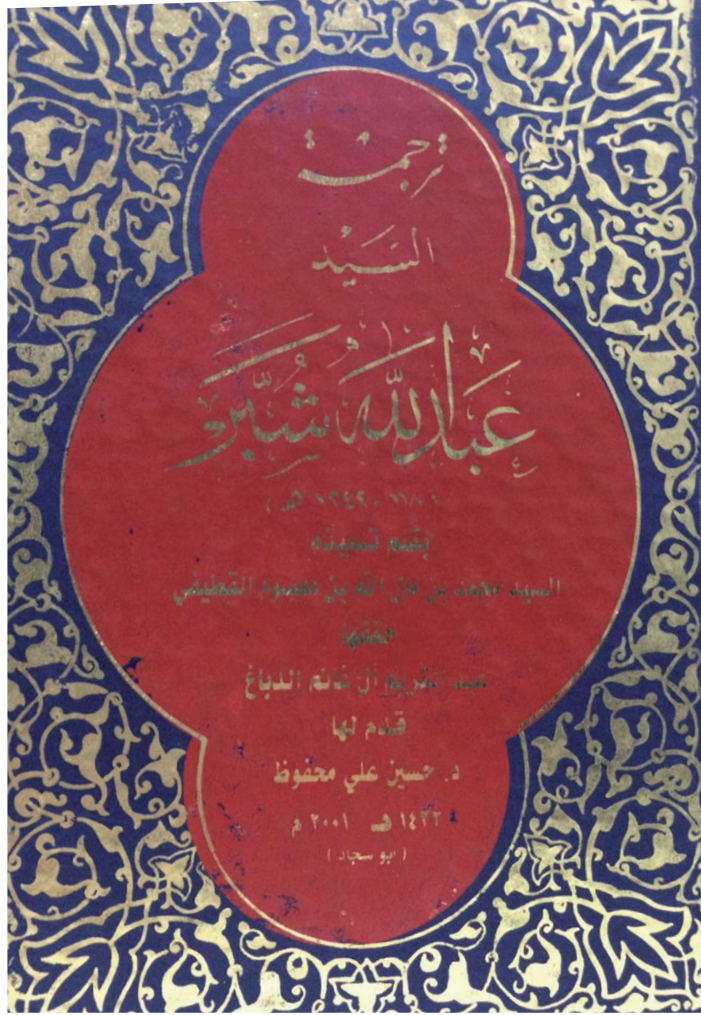 ترجمة
السَّيِّد
عبد الله شُبَّر
بقلم تلميذه
السيد محمد بن مال الله بن معصوم القطيفي
حققها
عبد الكريم آل غانم الدباغ
قدم لها
د. حسين علي محفوظ
١٤٢٢ هـ ٢٠٠١ م
( ابو سجاد )